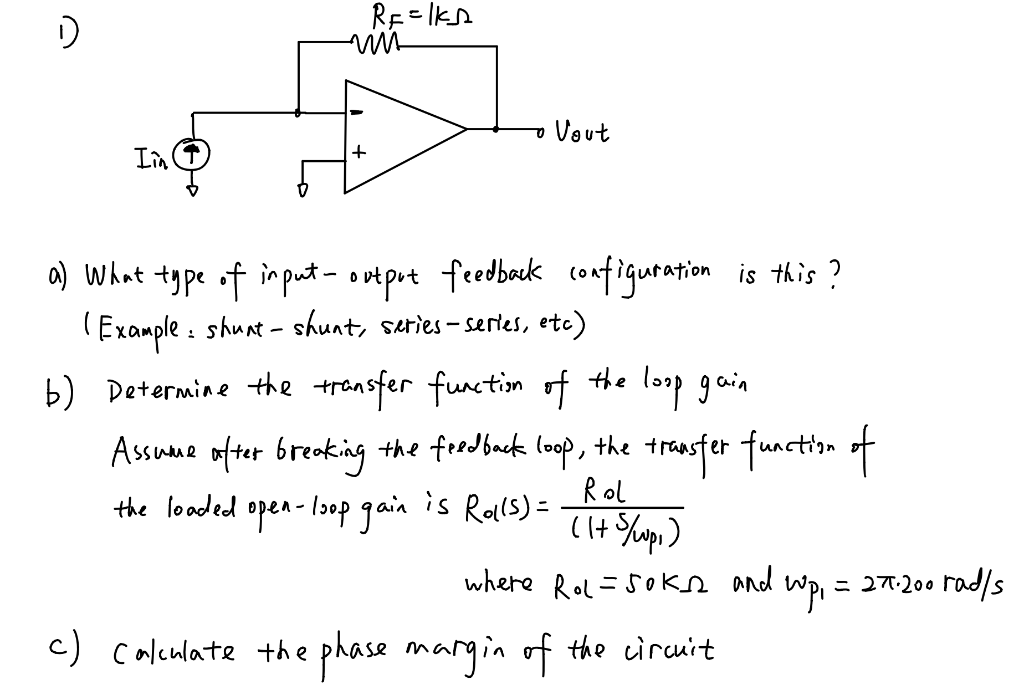 1)
R_F = 1kΩ
-
+
Iin
Vout
a) What type of input-output feedback configuration is this?
(Example: shunt-shunt, series-series, etc)
b) Determine the transfer function of the loop gain
Assume after breaking the feedback loop, the transfer function of
the loaded open-loop gain is Rol(s) = Rol / (1+ s/ωp1)
where Rol = 50KΩ and ωp1 = 2π·200 rad/s
c) Calculate the phase margin of the circuit